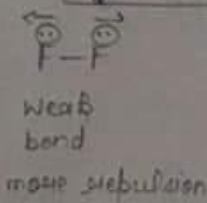 F-F
Weak
bond
more repulsion